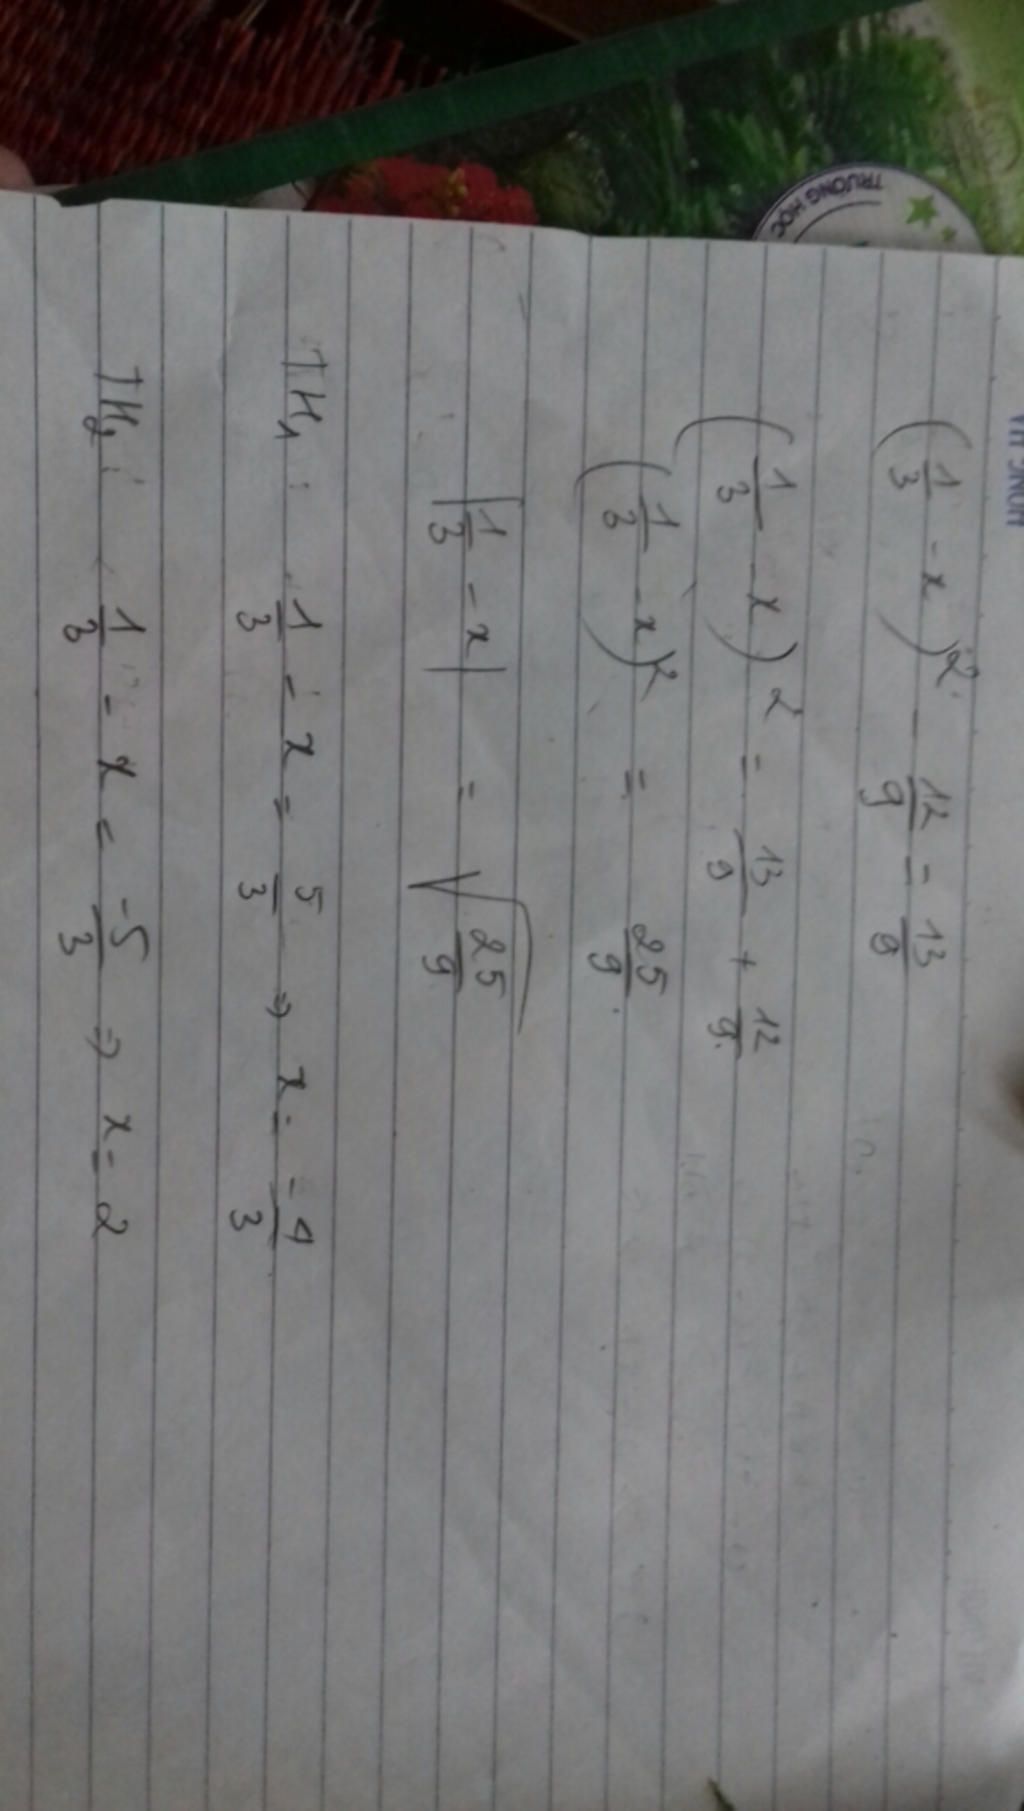 TRƯỜNG HỌC
(1/3 - x)² - 12/9 = 13/9
(1/3 - x)² = 13/9 + 12/9
(1/3 - x)² = 25/9
|1/3 - x| = √(25/9)
TH1: 1/3 - x = 5/3 ⇒ x = -4/3
TH2: 1/3 - x = -5/3 ⇒ x = 2